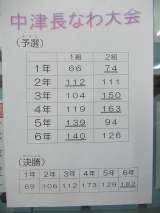 中津長なわ大会
(予選)
1組 2組
1年 66 74
2年 112 111
3年 104 150
4年 119 163
5年 139 94
6年 140 126
(決勝)
1年 2年 3年 4年 5年 6年
69 106 112 173 129 182